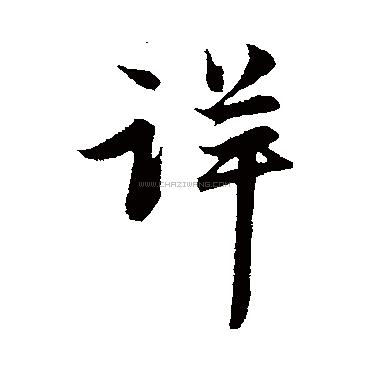 詳
WWW.CHAZIWANG.COM